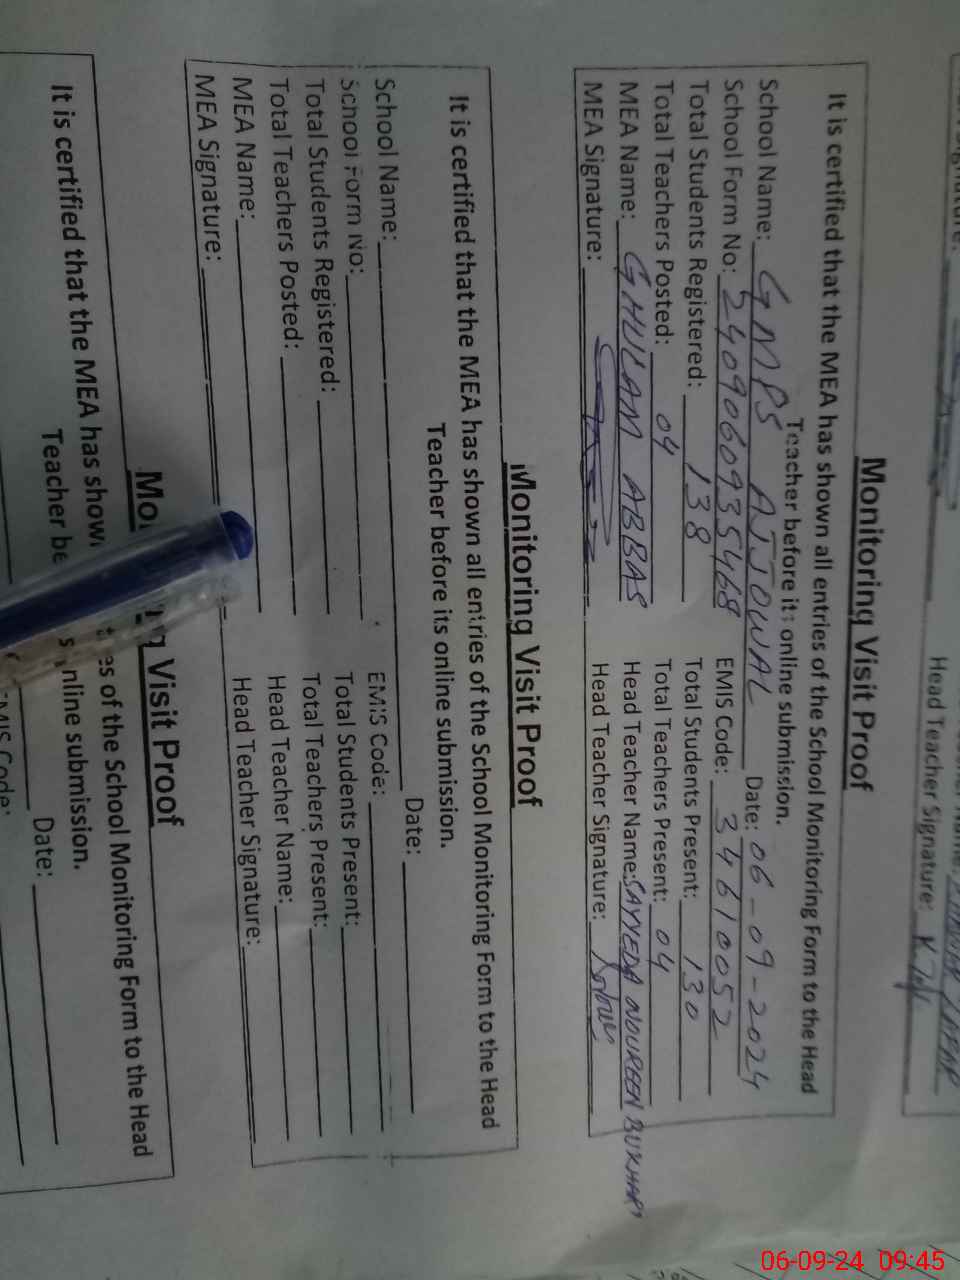 Head Teacher Signature:
Monitoring Visit Proof
It is certified that the MEA has shown all entries of the School Monitoring Form to the Head
Teacher before its online submission.
School Name: GMPS AJJOWAL Date: 06-09-2024
School Form No: 2409060935468 EMIS Code: 34610052
Total Students Registered: 138 Total Students Present: 130
Total Teachers Posted: 04 Total Teachers Present: 04
MEA Name: GHULAM ABBAS Head Teacher Name: SAYYEDA NOUREEN BUKHARI
MEA Signature: Head Teacher Signature:
Monitoring Visit Proof
It is certified that the MEA has shown all entries of the School Monitoring Form to the Head
Teacher before its online submission.
School Name: Date:
School Form No: EMIS Code:
Total Students Registered: Total Students Present:
Total Teachers Posted: Total Teachers Present:
MEA Name: Head Teacher Name:
MEA Signature: Head Teacher Signature:
Visit Proof
It is certified that the MEA has shown of the School Monitoring Form to the Head
Teacher submission.
Date:
EMIS Code:
06-09-24 09:45